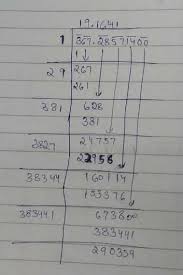 19.1641
1 367.28571400
1
29 267
261
381 628
381
3827 24757
22956
38344 160114
153376
383441 673800
383441
290359